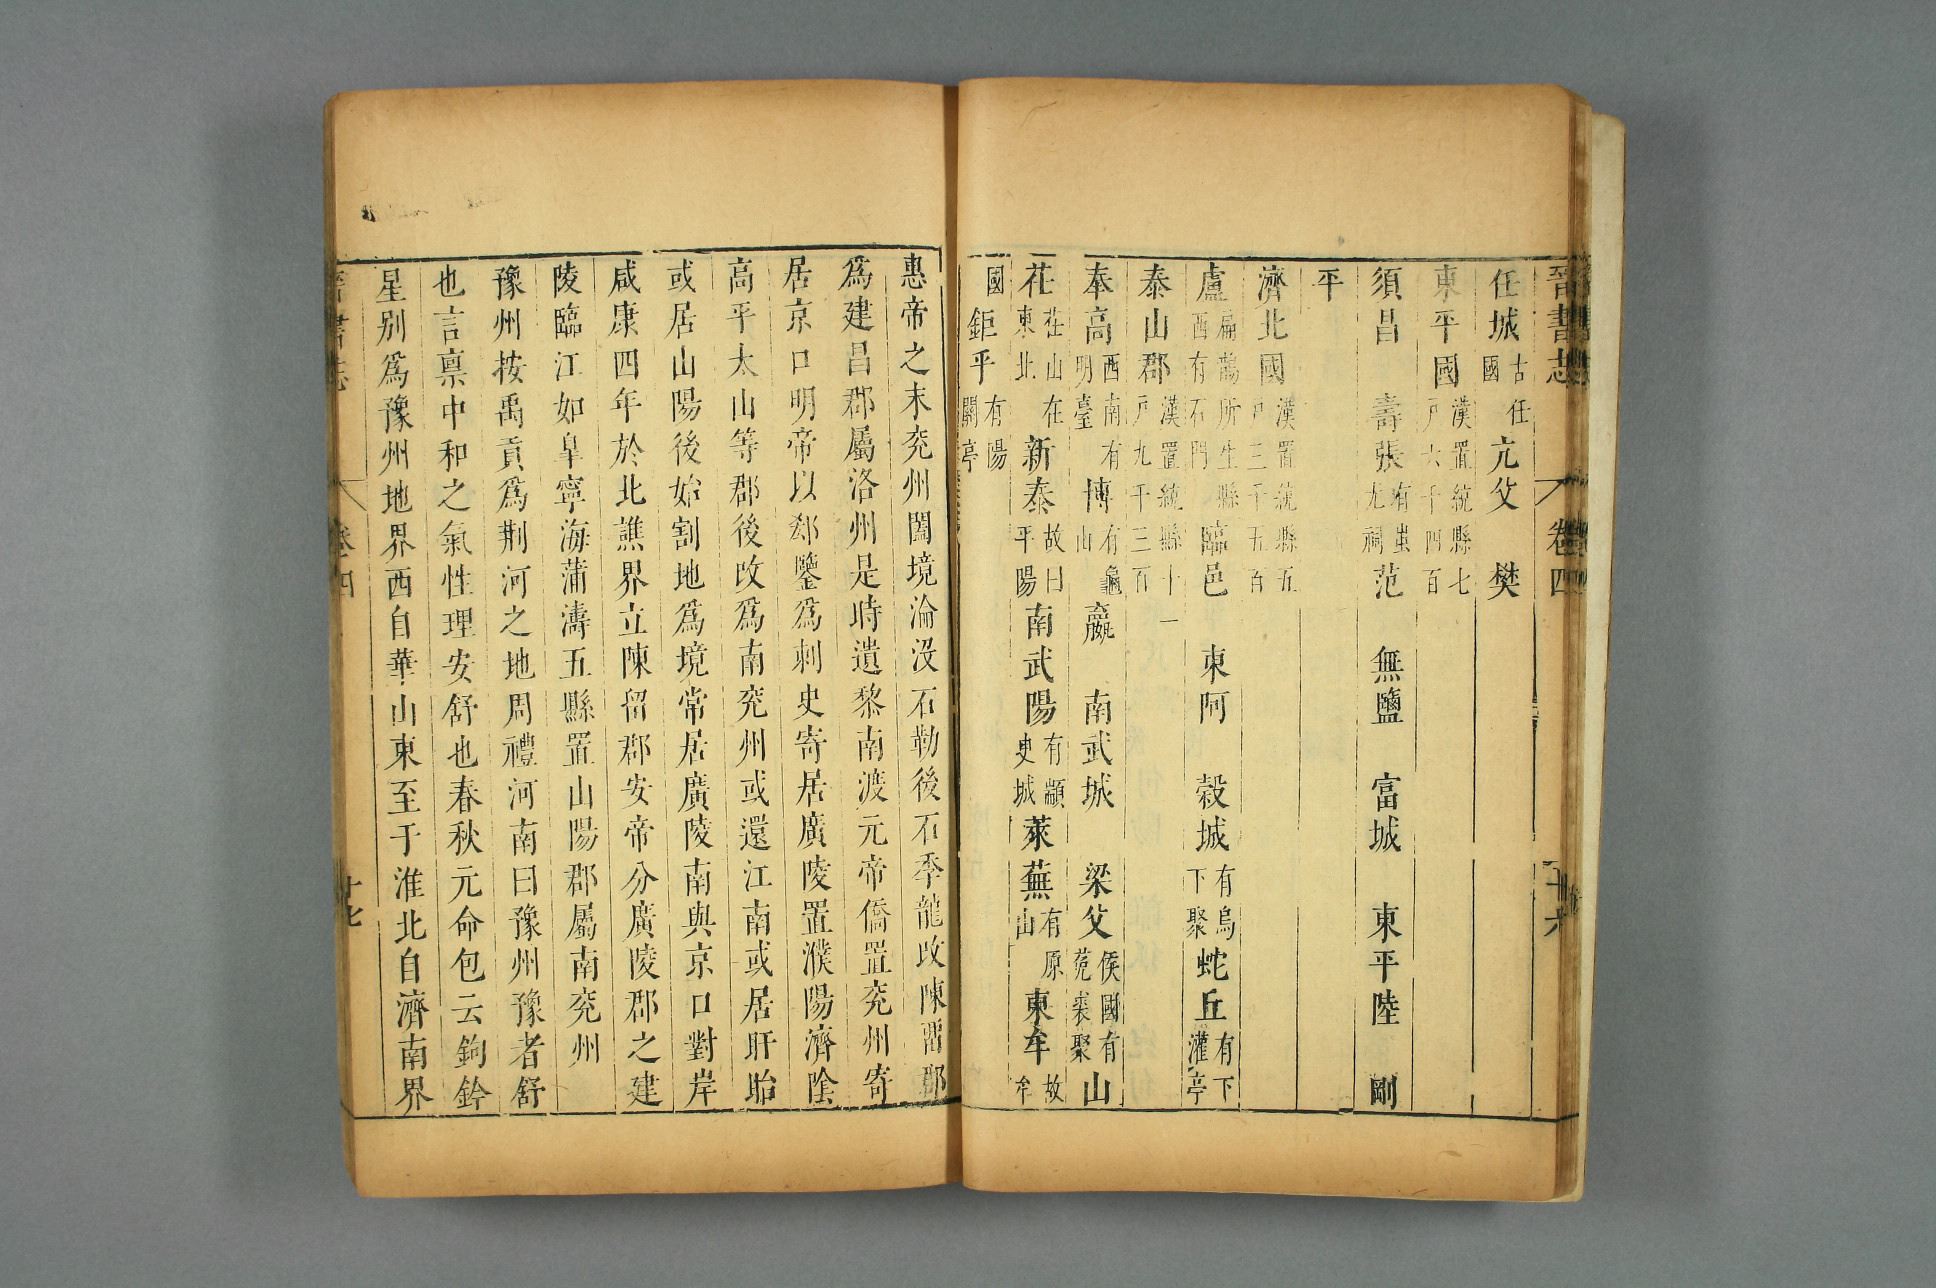 晉書志 卷四
任城古任國 亢父 樊
東平國漢置統縣七戶六千四百
須昌 壽張有蚩尤祠 范 無鹽 富城 東平陸 剛
平
濟北國漢置統縣五戶三千五百
盧扁鵲所生縣西有石門 臨邑 東阿 穀城有烏下聚 蛇丘有下灌亭
泰山郡漢置統縣十一戶九千三百
奉高西南有明臺 博有龜山 嬴 南武城 梁父侯國有菟裘聚 山
茌茌山在東北 新泰故曰平陽 南武陽有顓史城 萊蕪有原山 東牟故牟
國 鉅平有陽關亭
惠帝之末兖州闔境淪没石勒後石季龍改陳畱郡
爲建昌郡屬洛州是時遺黎南渡元帝僑置兖州寄
居京口明帝以郄鑒爲刺史寄居廣陵置濮陽濟陰
高平太山等郡後改爲南兖州或還江南或居盱眙
或居山陽後始割地爲境常居廣陵南與京口對岸
咸康四年於北譙界立陳留郡安帝分廣陵郡之建
陵臨江如臯寧海蒲濤五縣置山陽郡屬南兖州
豫州按禹貢爲荆河之地周禮河南曰豫州豫者舒
也言禀中和之氣性理安舒也春秋元命包云鉤鈐
星別爲豫州地界西自華山東至于淮北自濟南界
晉書志 卷四 十七